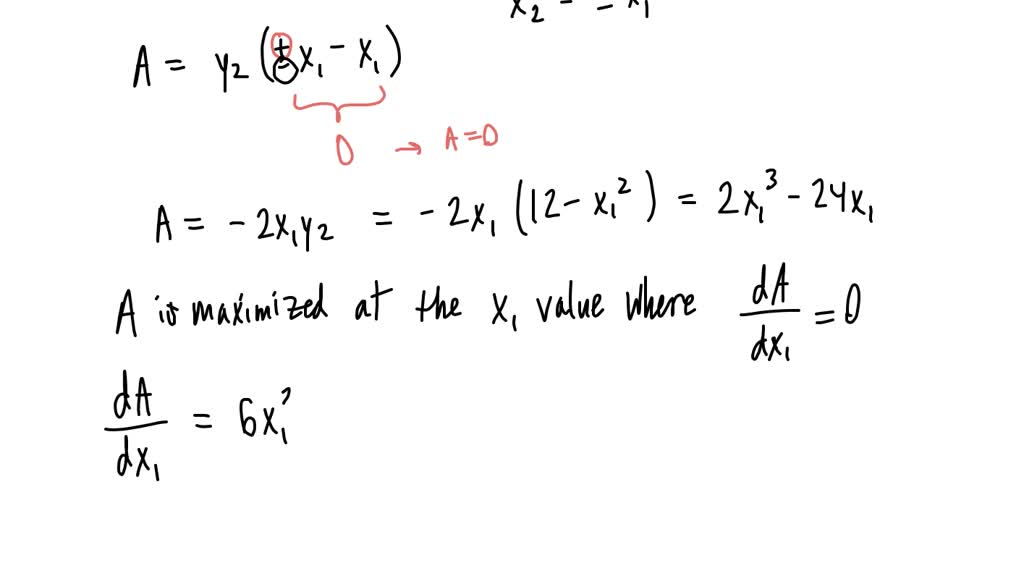 x₂ = ± x₁
A = y₂ (± x₁ - x₁)
0 → A = 0
A = - 2x₁y₂ = - 2x₁ (12 - x₁²) = 2x₁³ - 24x₁
A is maximized at the x₁ value where dA/dx₁ = 0
dA/dx₁ = 6x₁²